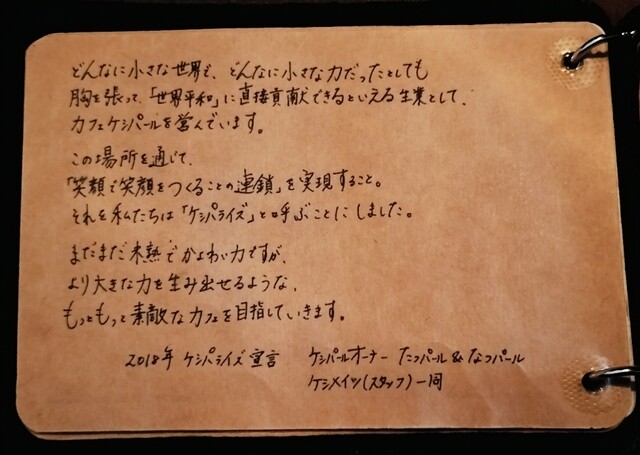 どんなに小さな世界で、どんなに小さな力だったとしても
胸を張って、「世界平和」に直接貢献できるといえる生業として、
カフェケシパールを営んでいます。
この場所を通じて、
「笑顔で笑顔をつくることの連鎖」を実現すること。
それを私たちは「ケシパライズ」と呼ぶことにしました。
まだまだ未熟でかよわい力ですが、
より大きな力を生み出せるような、
もっともっと素敵なカフェを目指していきます。
2018年 ケシパライズ宣言 ケシパールオーナー たつパール & なつパール
ケシメイツ(スタッフ)一同